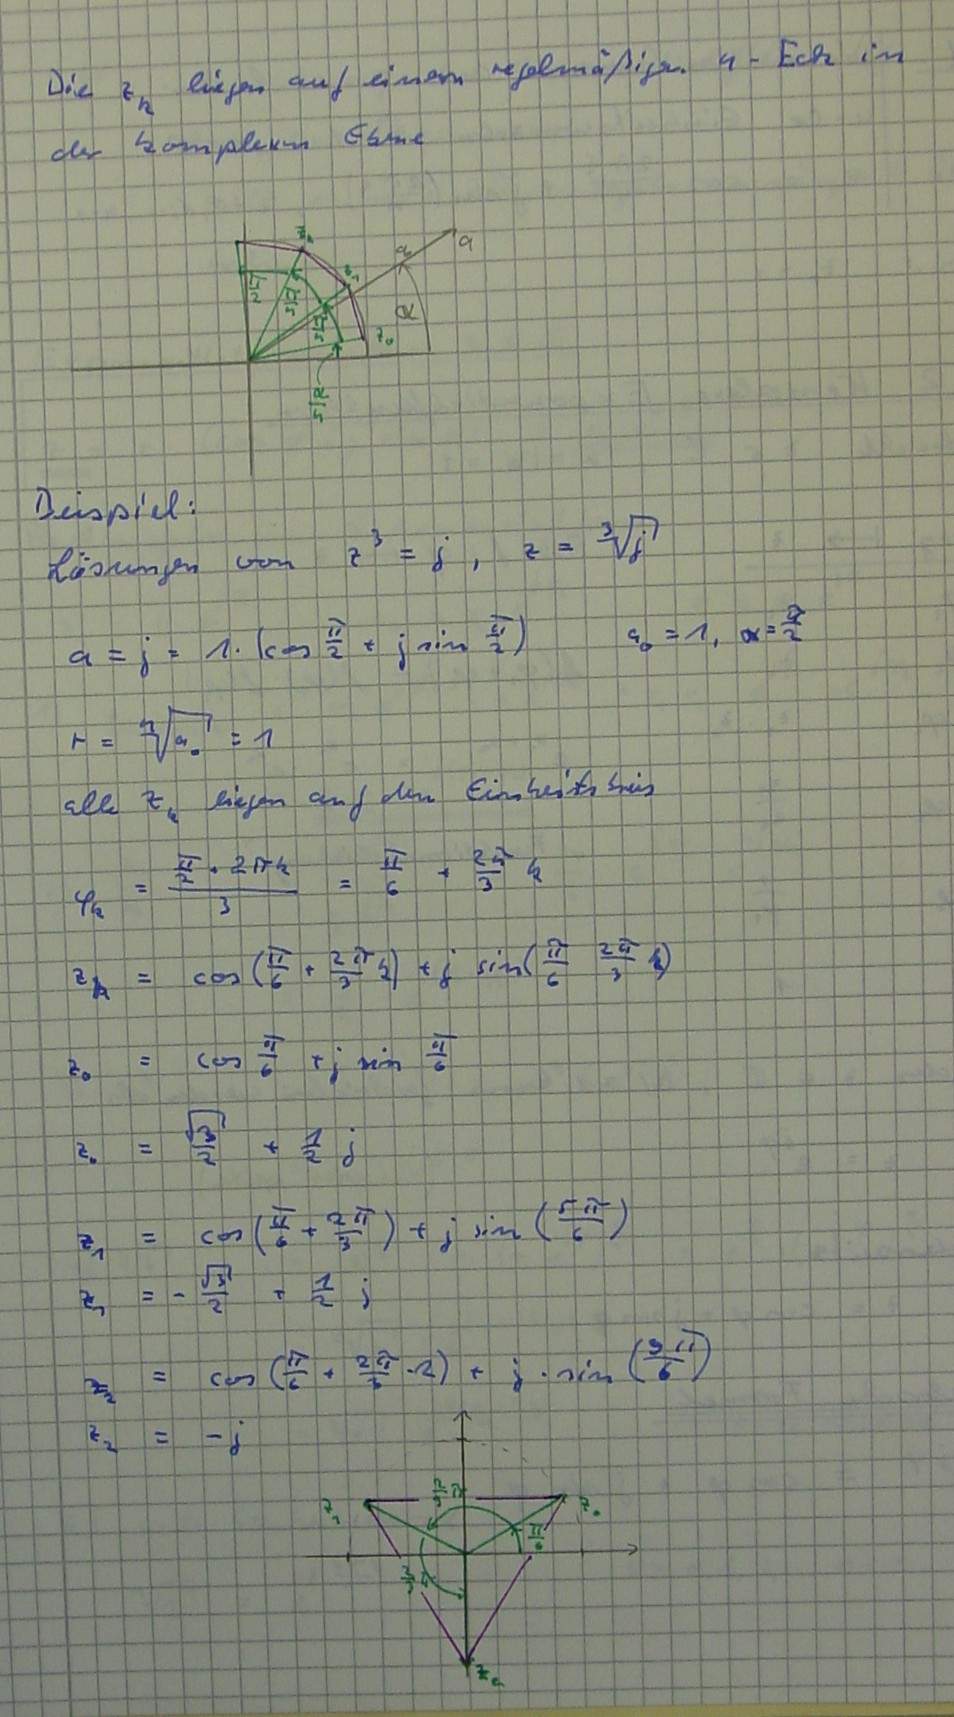 Die z_k liegen auf einem regelmäßigen n-Eck in
der komplexen Ebene
z_0
a
α
Beispiel:
Lösungen von z³ = j, z = ³√j
a = j = 1·(cos π/2 + j sin π/2) a_0 = 1, α = π/2
r = ⁿ√a_0 = 1
alle z_k liegen auf dem Einheitskreis
φ_k = (π/2 + 2πk)/3 = π/6 + 2π/3 k
z_k = cos(π/6 + 2π/3 k) + j sin(π/6 2π/3 k)
z_0 = cos π/6 + j sin π/6
z_0 = √3/2 + 1/2 j
z_1 = cos(π/6 + 2π/3) + j sin(5π/6)
z_1 = -√3/2 + 1/2 j
z_2 = cos(π/6 + 2π/3 · 2) + j · sin(9π/6)
z_2 = -j
z_1 2/3 π z_0
π/6
2/3 π
z_2